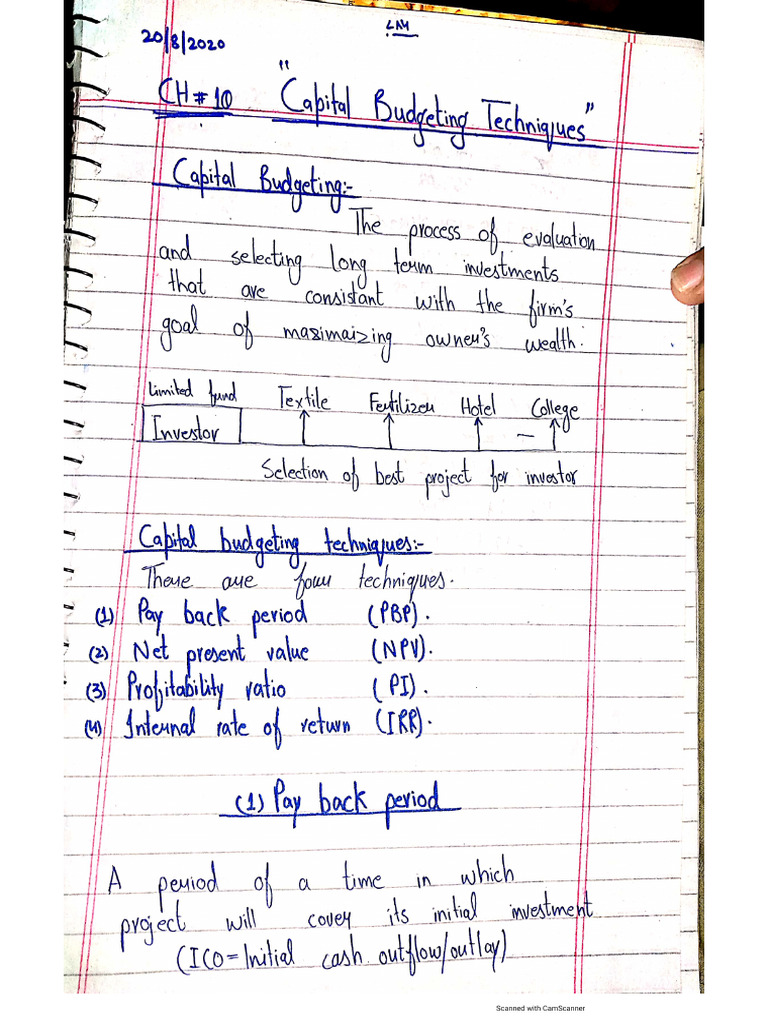 LAM
20/8/2020
CH # 10 "Capital Budgeting Techniques"
Capital Budgeting:-
The process of evaluation
and selecting long term investments
that are consistant with the firm's
goal of maximaizing owner's wealth.
Limited fund Textile Fertilizer Hotel College
Investor
Selection of best project for investor
Capital budgeting techniques:-
There are four techniques.
(1) Pay back period (PBP).
(2) Net present value (NPV).
(3) Profitability ratio (PI).
(4) Internal rate of return (IRR).
(1) Pay back period
A period of a time in which
project will cover its initial investment
(ICO = Initial cash outflow/outlay)
Scanned with CamScanner